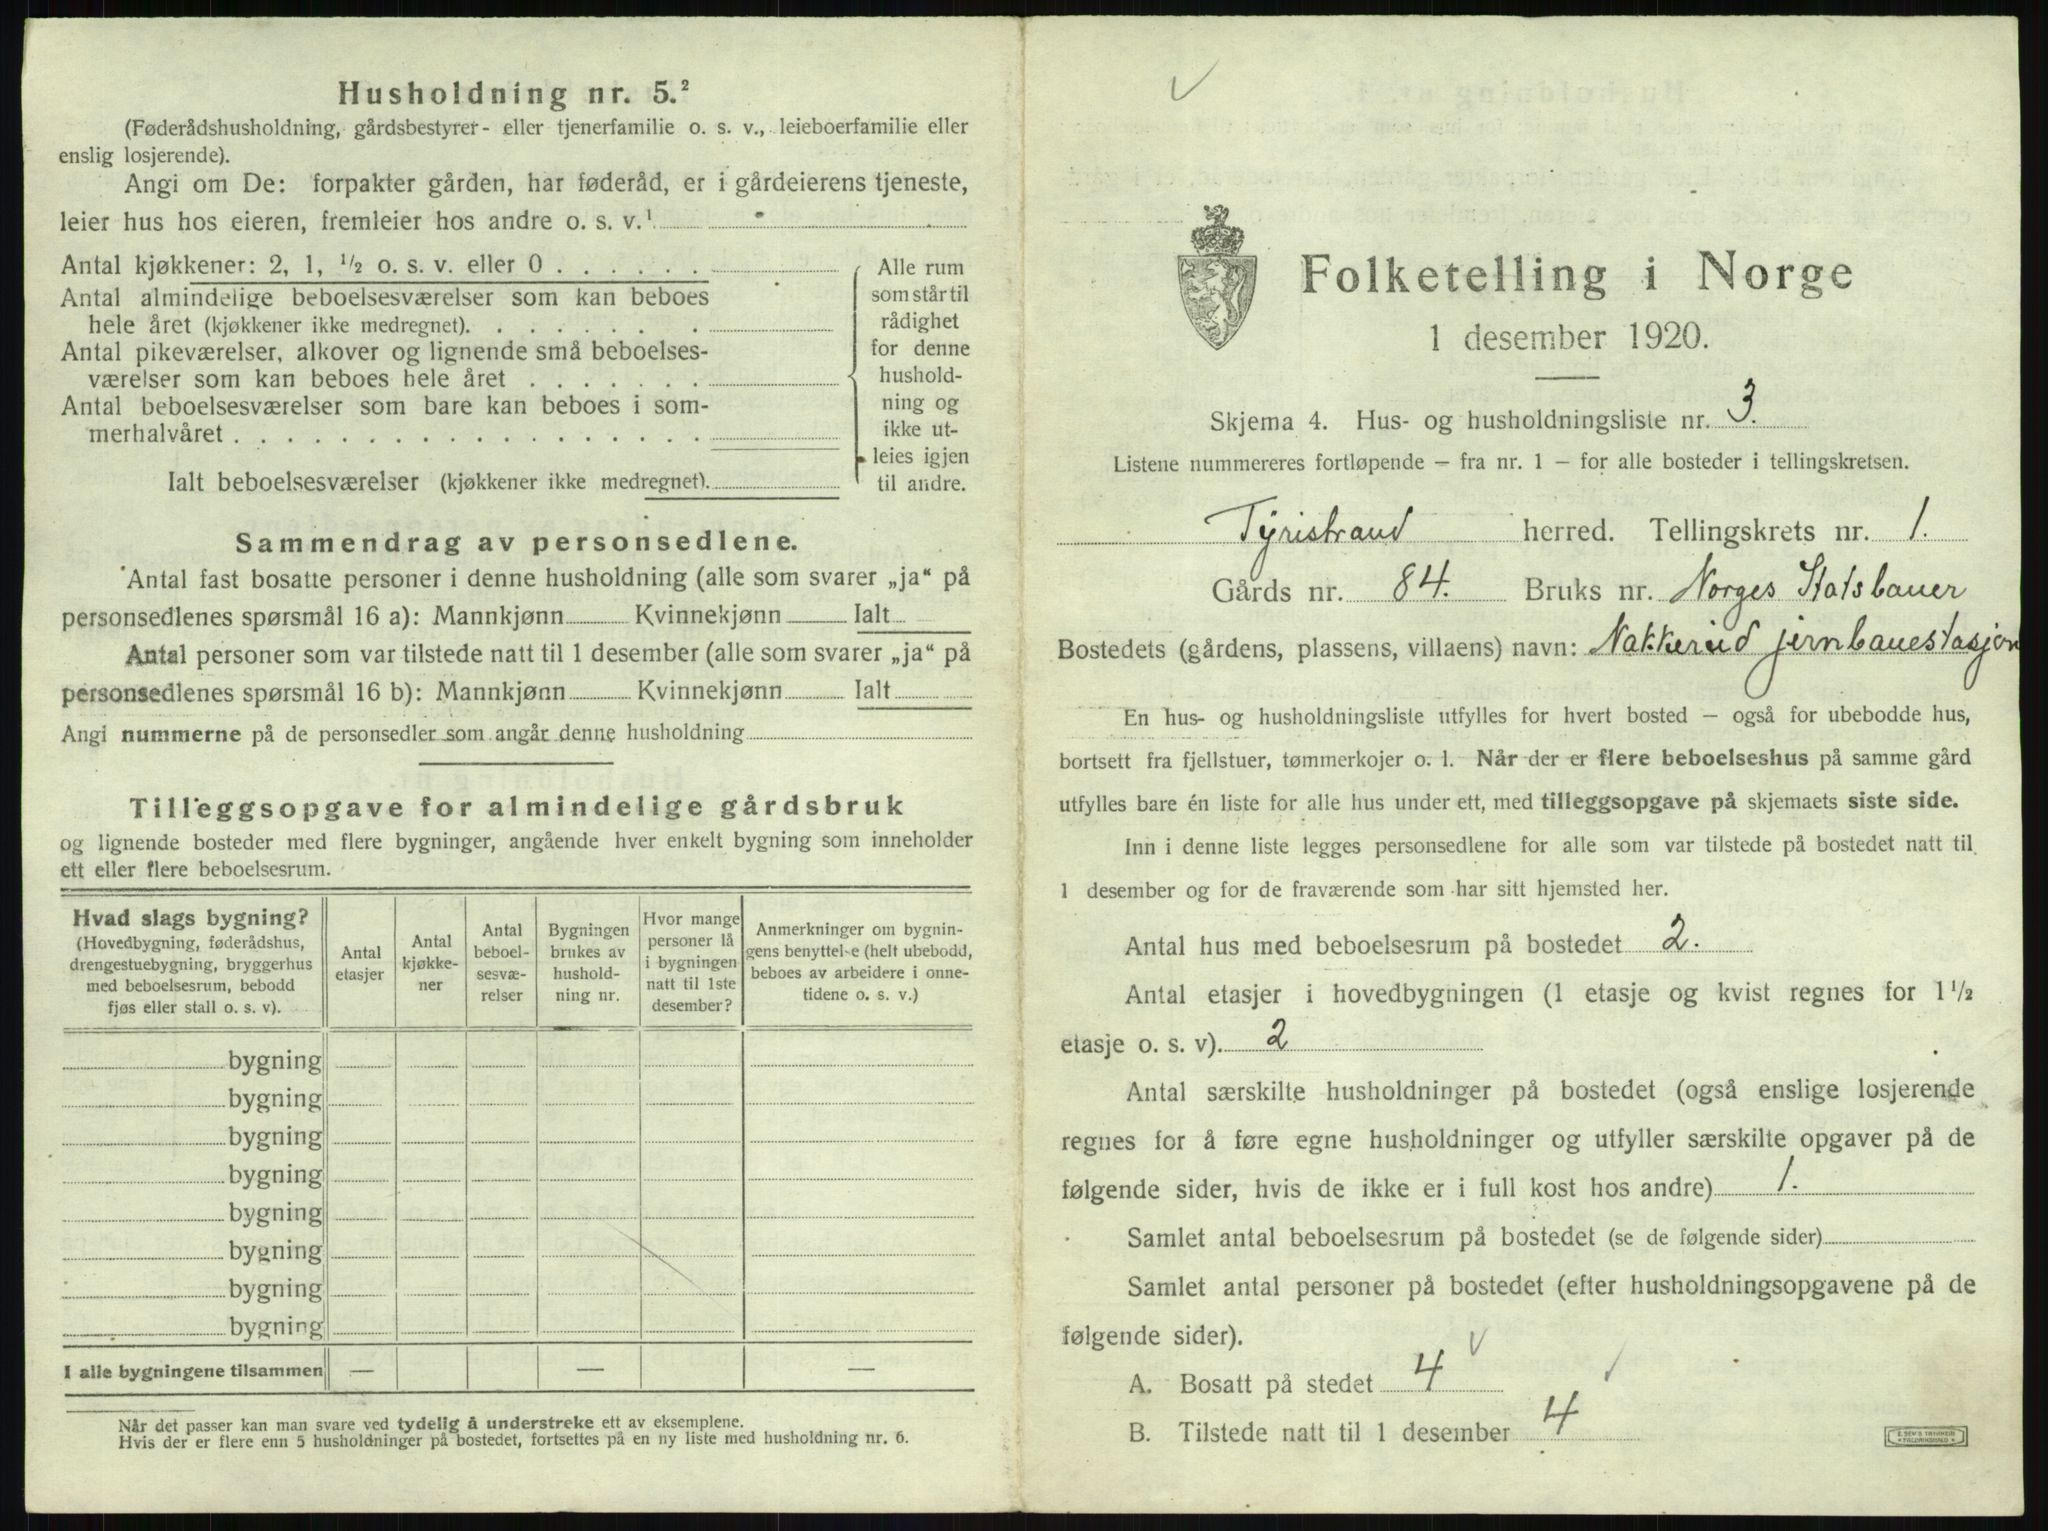 Husholdning nr. 5.²
(Føderådshusholdning, gårdsbestyrer- eller tjenerfamilie o. s. v., leieboerfamilie eller
enslig losjerende).
Angi om De: forpakter gården, har føderåd, er i gårdeierens tjeneste,
leier hus hos eieren, fremleier hos andre o. s. v.¹
Antal kjøkkener: 2, 1, ½ o. s. v. eller 0 . . . . . .
Antal almindelige beboelsesværelser som kan beboes
hele året (kjøkkener ikke medregnet). . . . . . . .
Antal pikeværelser, alkover og lignende små beboelses-
værelser som kan beboes hele året . . . . . . .
Antal beboelsesværelser som bare kan beboes i som-
merhalvåret . . . . . . . . . . . . . . . . . .
Ialt beboelsesværelser (kjøkkener ikke medregnet).
Alle rum
som står til
rådighet
for denne
hushold-
ning og
ikke ut-
leies igjen
til andre.
Sammendrag av personsedlene.
Antal fast bosatte personer i denne husholdning (alle som svarer „ja“ på
personsedlenes spørsmål 16 a): Mannkjønn Kvinnekjønn Ialt
Antal personer som var tilstede natt til 1 desember (alle som svarer „ja“ på
personsedlenes spørsmål 16 b): Mannkjønn Kvinnekjønn Ialt
Angi nummerne på de personsedler som angår denne husholdning
Tilleggsopgave for almindelige gårdsbruk
og lignende bosteder med flere bygninger, angående hver enkelt bygning som inneholder
ett eller flere beboelsesrum.
Hvad slags bygning?
(Hovedbygning, føderådshus,
drengestuebygning, bryggerhus
med beboelsesrum, bebodd
fjøs eller stall o. s. v).
Antal
etasjer
Antal
kjøkke-
ner
Antal
beboel-
sesvæ-
relser
Bygningen
brukes av
hushold-
ning nr.
Hvor mange
personer lå
i bygningen
natt til 1ste
desember?
Anmerkninger om bygnin-
gens benyttelse (helt ubebodd,
beboes av arbeidere i onne-
tidene o. s. v.)
bygning
bygning
bygning
bygning
bygning
bygning
bygning
bygning
I alle bygningene tilsammen — — —
Når det passer kan man svare ved tydelig å understreke ett av eksemplene.
Hvis der er flere enn 5 husholdninger på bostedet, fortsettes på en ny liste med husholdning nr. 6.
Folketelling i Norge
1 desember 1920.
Skjema 4. Hus- og husholdningsliste nr. 3.
Listene nummereres fortløpende – fra nr. 1 – for alle bosteder i tellingskretsen.
Tyristrand herred. Tellingskrets nr. 1.
Gårds nr. 84. Bruks nr. Norges Statsbaner
Bostedets (gårdens, plassens, villaens) navn: Nakkerud jernbanestasjon
En hus- og husholdningsliste utfylles for hvert bosted – også for ubebodde hus,
bortsett fra fjellstuer, tømmerkojer o. l. Når der er flere beboelseshus på samme gård
utfylles bare én liste for alle hus under ett, med tilleggsopgave på skjemaets siste side.
Inn i denne liste legges personsedlene for alle som var tilstede på bostedet natt til
1 desember og for de fraværende som har sitt hjemsted her.
Antal hus med beboelsesrum på bostedet 2.
Antal etasjer i hovedbygningen (1 etasje og kvist regnes for 1½
etasje o. s. v). 2
Antal særskilte husholdninger på bostedet (også enslige losjerende
regnes for å føre egne husholdninger og utfyller særskilte opgaver på de
følgende sider, hvis de ikke er i full kost hos andre) 1.
Samlet antal beboelsesrum på bostedet (se de følgende sider)
Samlet antal personer på bostedet (efter husholdningsopgavene på de
følgende sider).
A. Bosatt på stedet 4
B. Tilstede natt til 1 desember 4